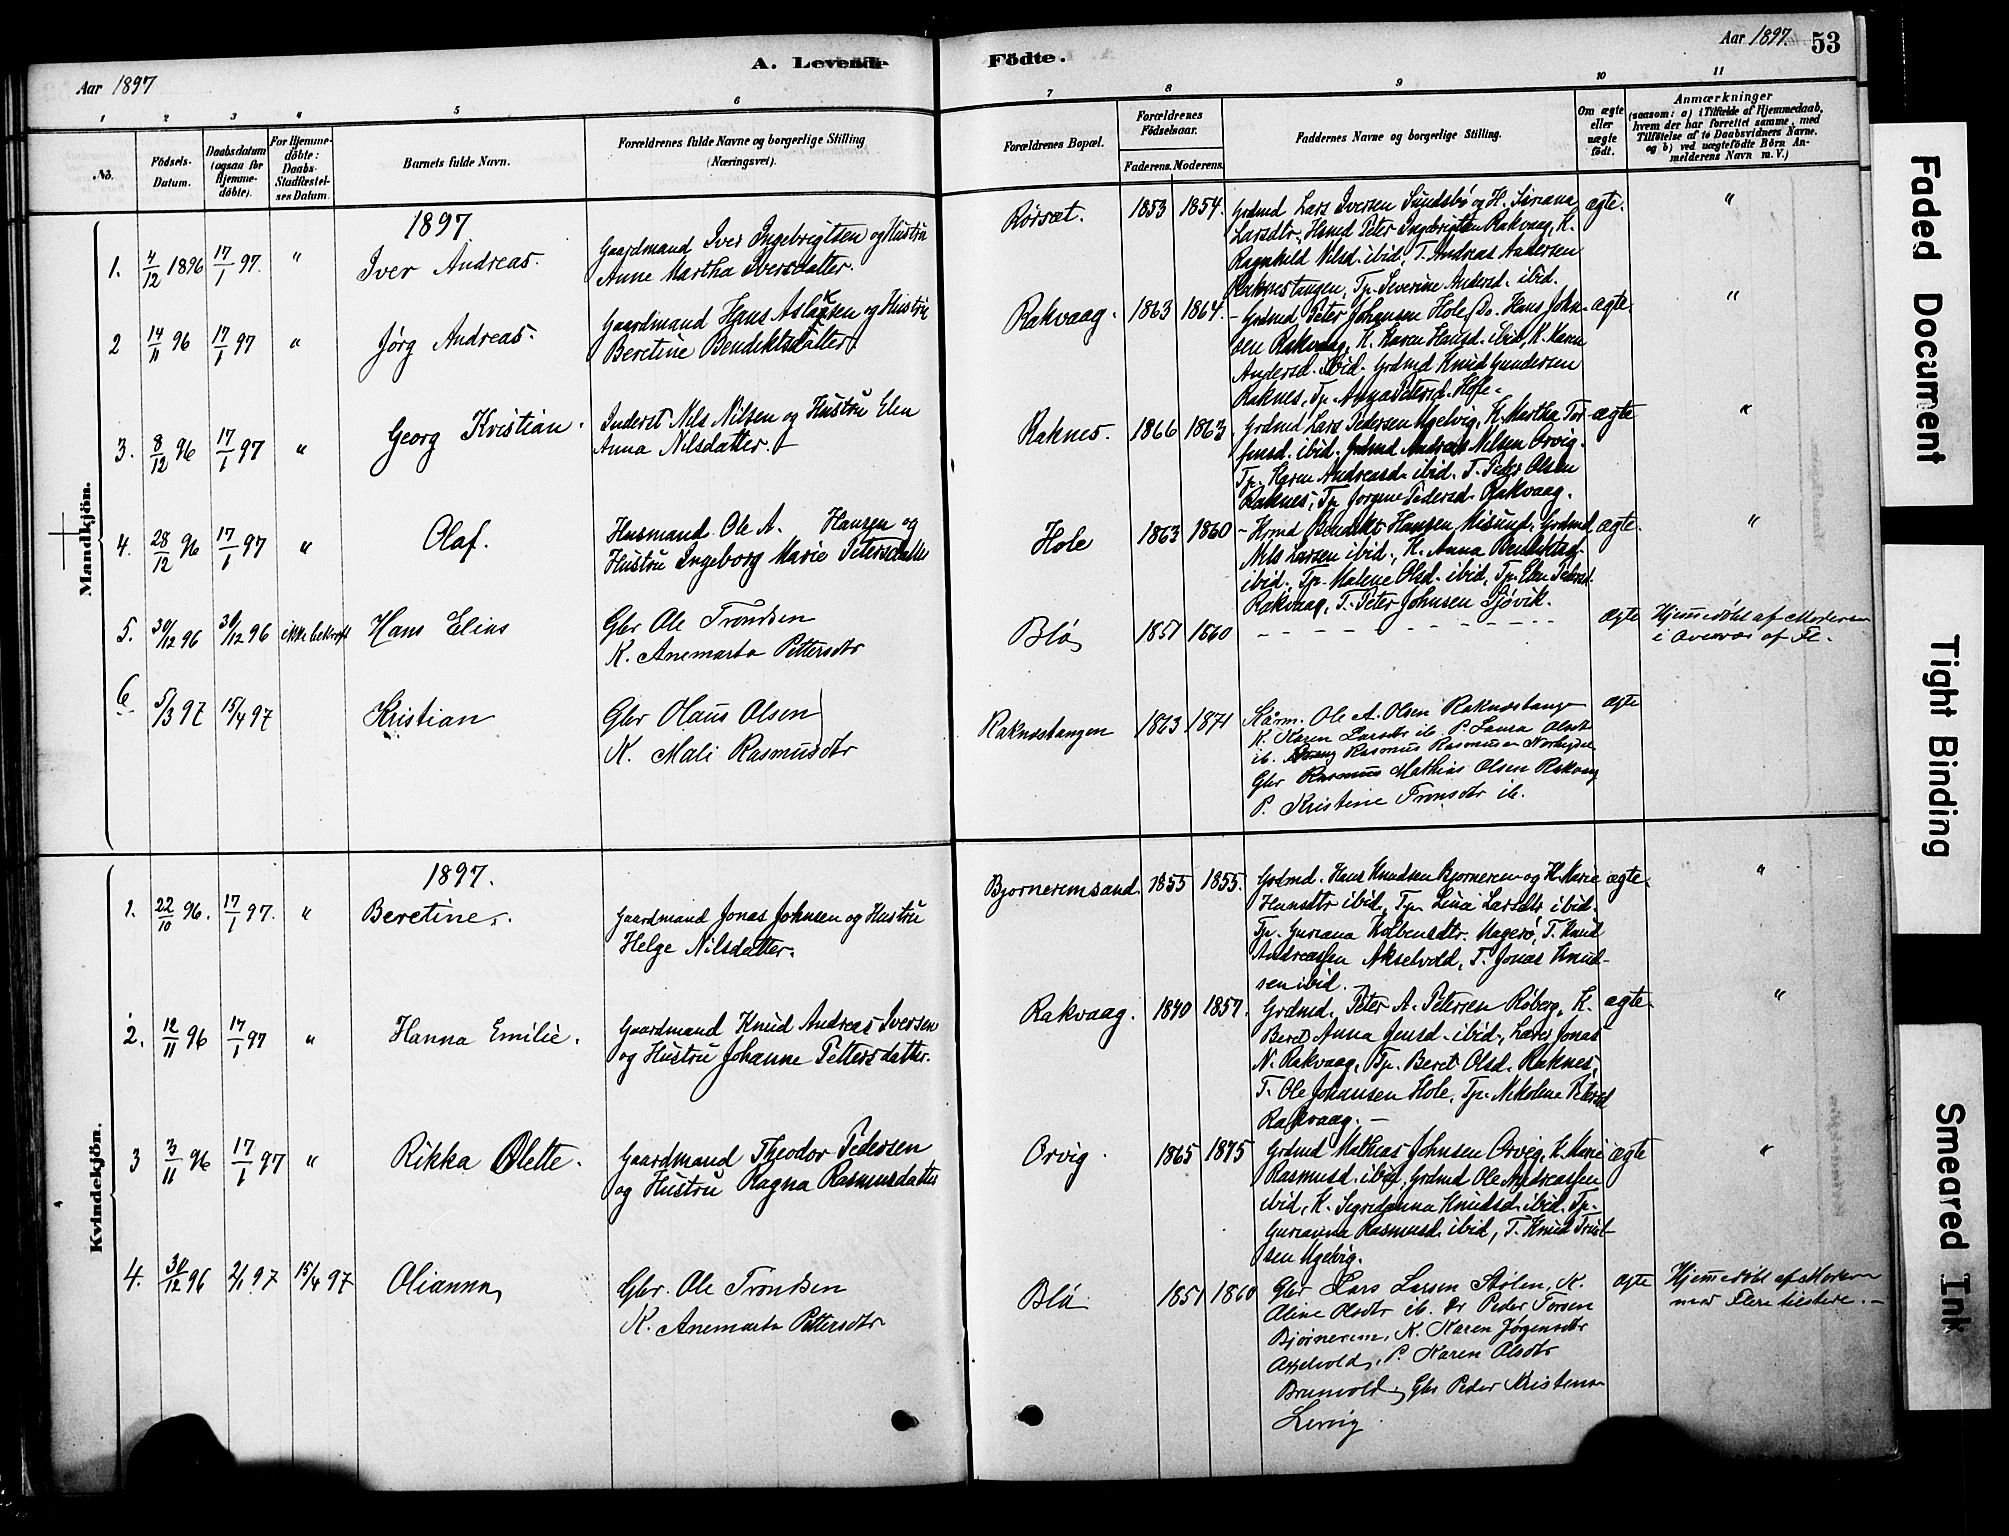 Aar 1897
A. Levende
Födte.
Aar 1897.
53
1
2
3
4
5
6
7
8
9
10
11
No.
Födsels-
Datum.
Daabsdatum
(ogsaa for
Hjemme-
döbte).
For Hjemme-
döbte:
Daabs-
Stadfæstel-
ses Datum.
Barnets fulde Navn.
Forældrenes fulde Navne og borgerlige Stilling
(Næringsvei).
Forældrenes Bopæl.
Forældrenes
Födselsaar.
Faderens.
Moderens.
Faddernes Navne og borgerlige Stilling.
Om ægte
eller
uægte
födt.
Anmærkninger
(saasom: a) i Tilfælde af Hjemmedaab,
hvem der har forrettet samme, med
Tilföielse af to Daabsvidners Navne,
og b) ved uægtefödte Börn An-
melderens Navn m. V.)
Mandkjön.
1897
1. 4/12 1896 17/1 97. " Iver Andreas.
Gaardmand Iver Ingebrigtsen og Hustru
Anne Martha Iversdatter.
Rörsæt. 1853 1854.
Grdmd Lars Iversen Sundsbö og H. Siriana
Larsdtr, Hsmd Peter Ingebrigtsen Rakvaag, K.
Ragnhild Nilsd. ibid, T. Andreas Andersen
Raknestangen, Tp. Severine Andersd. ibid.
ægte. "
2 14/11 96 17/1 97 " Jørg Andreas.
Gaardmand Hans Aslaksen og Hustru
Beretine Bendiktsdatter.
Rakvaag. 1863 1864.
Grdmd Peter Johansen Hole, Do. Hans John-
sen Rakvaag, K. Karen Hansd. ibid, K. Karen
Andersd. ibid. Grdmd Knud Gundersen
Raknes, Tp. Anna Petersd. Hole.
ægte. "
3. 8/12 96 17/1 97 " Georg Kristian.
Inderst Nils Nilsen og Hustru Elen
Anna Nilsdatter.
Raknes. 1866 1863.
Grdmd Lars Pedersen Ugelvig, K. Martha Tor-
finsd. ibid. Grdmd Andreas Nilsen Orvig.
Tp. Karen Andreasd. ibid. T. Peder Olsen
Raknes, Tp. Jorgine Pedersd. Rakvaag.
ægte "
4. 28/12 96 17/1 97 " Olaf.
Husmand Ole A. Hansen og
Hustru Ingeborg Marie Petersdatter
Hole 1863 1860
Hsmd Bendikt Hansen Misund, Grdmd
Nils Larsen ibid, K. Anna Bendiktsd.
ibid. Tp. Malene Olsd. ibid, Tp. Elen Pedersd.
Rakvaag, T. Peter Johnsen Sjövik.
ægte. "
5. 30/12 96 30/12 96 ikke bekræft Hans Elias
Gbr Ole Trondsen
K. Anemarta Pettersdtr
Blø 1851 1860
ægte
Hjemmedöbt af Moderen
i Overvær af Fl.
6. 5/3 97 15/4 97 Kristian
Gbr Claus Olsen
K. Mali Rasmusdtr
Raknestangen 1863 1871
Kårm. Ole A. Olsen Raknestangen
K. Karen Larsdtr ib. P. Laura Olsdtr
ib. Rasmus Rasmussen
Gbr Rasmus Mathias Olsen Rakvaag
P. Kristine Tronsdtr ib.
ægte
Kvindekjön.
1897.
1. 22/10 96. 17/1 97. " Beretine.
Gaardmand Jonas Johnsen og Hustru
Helge Nilsdatter.
Bjorneremsand. 1855 1855.
Grdmd. Hans Knudsen Bjorneren og H. Marie
Hansdtr ibid, Tp. Lina Larsdtr ibid.
Tp. Guriana Kolbensdtr. Magerö, T. Knud
Andreassen Akselvold, T. Jonas Knud-
sen ibid.
ægte. "
2. 12/11 96 17/1 97 " Hanna Emilie.
Gaardmand Knud Andreas Iversen
og Hustru Johanne Pettersdatter.
Rakvaag. 1840 1857.
Grdmd. Peter A. Petersen Röberg, K.
Beret Anna Jensd. ibid, Lærer Jonas
N. Rakvaag, Tp. Beret Olsd. Raknes,
T. Ole Johansen Hole, Tp. Nikoline Petersd
Rakvaag.
ægte. "
3 3/11 96 17/1 97 " Rikka Olette.
Gaardmand Theodor Pedersen
og Hustru Ragna Rasmusdatter
Orvig. 1865 1875
Grdmd Mathias Johnsen Orvig, K. Marie
Rasmusd. ibid, Grdmd Ole Andreassen
ibid, K. Sigridanna Knudsd. ibid. Tp.
Gurianna Rasmusd. ibid, T. Knud Knud-
sen Ugelvig.
ægte "
4. 30/12 96 2/1 97 15/4 97 Olianna
Gbr. Ole Trondsen
K. Anemarta Pettersdtr
Blø 1851 1860
Gbr Lars Larsen Stølen, K.
Oline Olsdtr ib. Dr Peder Torsen
Bjørnerem, K. Karen Jørgensdtr
Axelvold, P. Karen Olsdtr
Brunvold, Gbr Peder Kristensen
Lervig
ægte
Hjemmedöbt af Moderen
med Flere tilstede.
Faded Document
Tight Binding
Smeared Ink